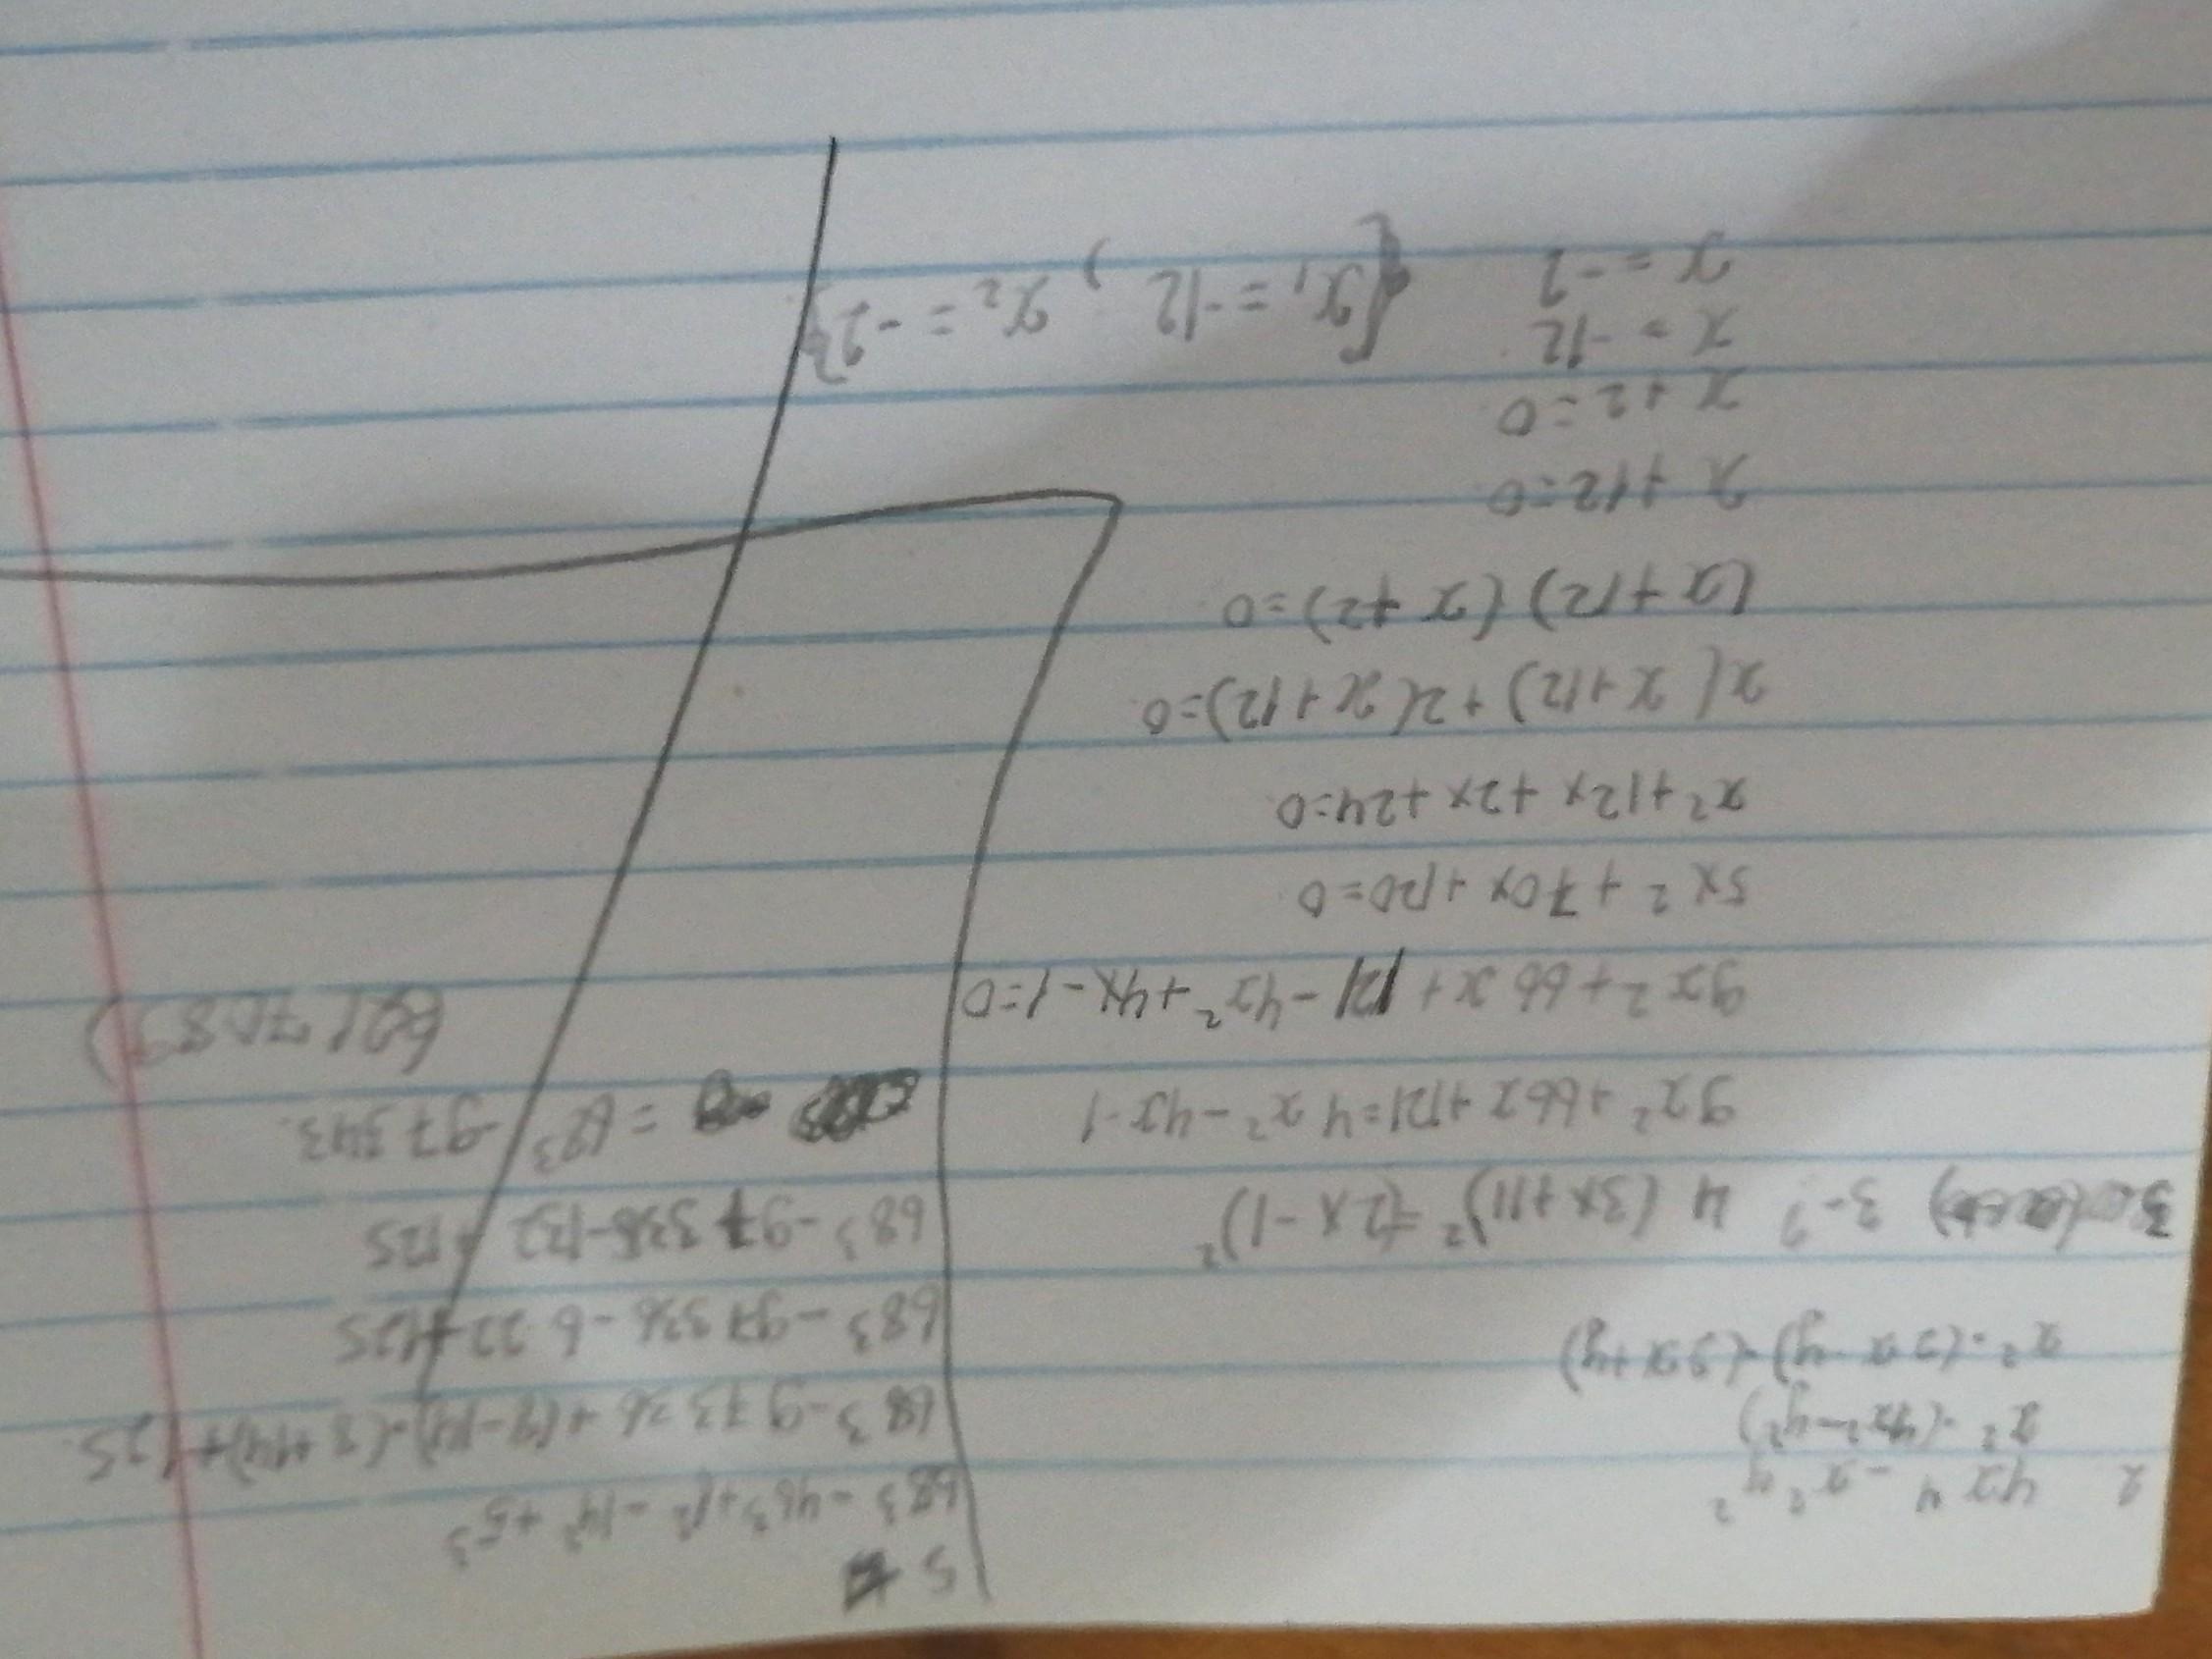 2 4x⁴ - x²y²
x² · (4x² - y²)
x² · (2x - y) · (2x + y)
3 - ? 4 (3x+11)² = (2x - 1)²
9x² + 66x + 121 = 4x² - 4x - 1
9x² + 66x + 121 - 4x² + 4x - 1 = 0
5x² + 70x + 120 = 0
x² + 12x + 2x + 24 = 0
x(x + 12) + 2(x + 12) = 0
(x + 12) (x + 2) = 0
x + 12 = 0
x + 2 = 0
x = -12
x = -2
{x₁ = -12, x₂ = -2}
5
68³ - 46³ + 8² - 14² + 5³
68³ - 97336 + (8 - 14) · (8 + 14) + 125
68³ - 97336 - 6 · 22 + 125
68³ - 97336 - 132 + 125
= 68³ - 97343